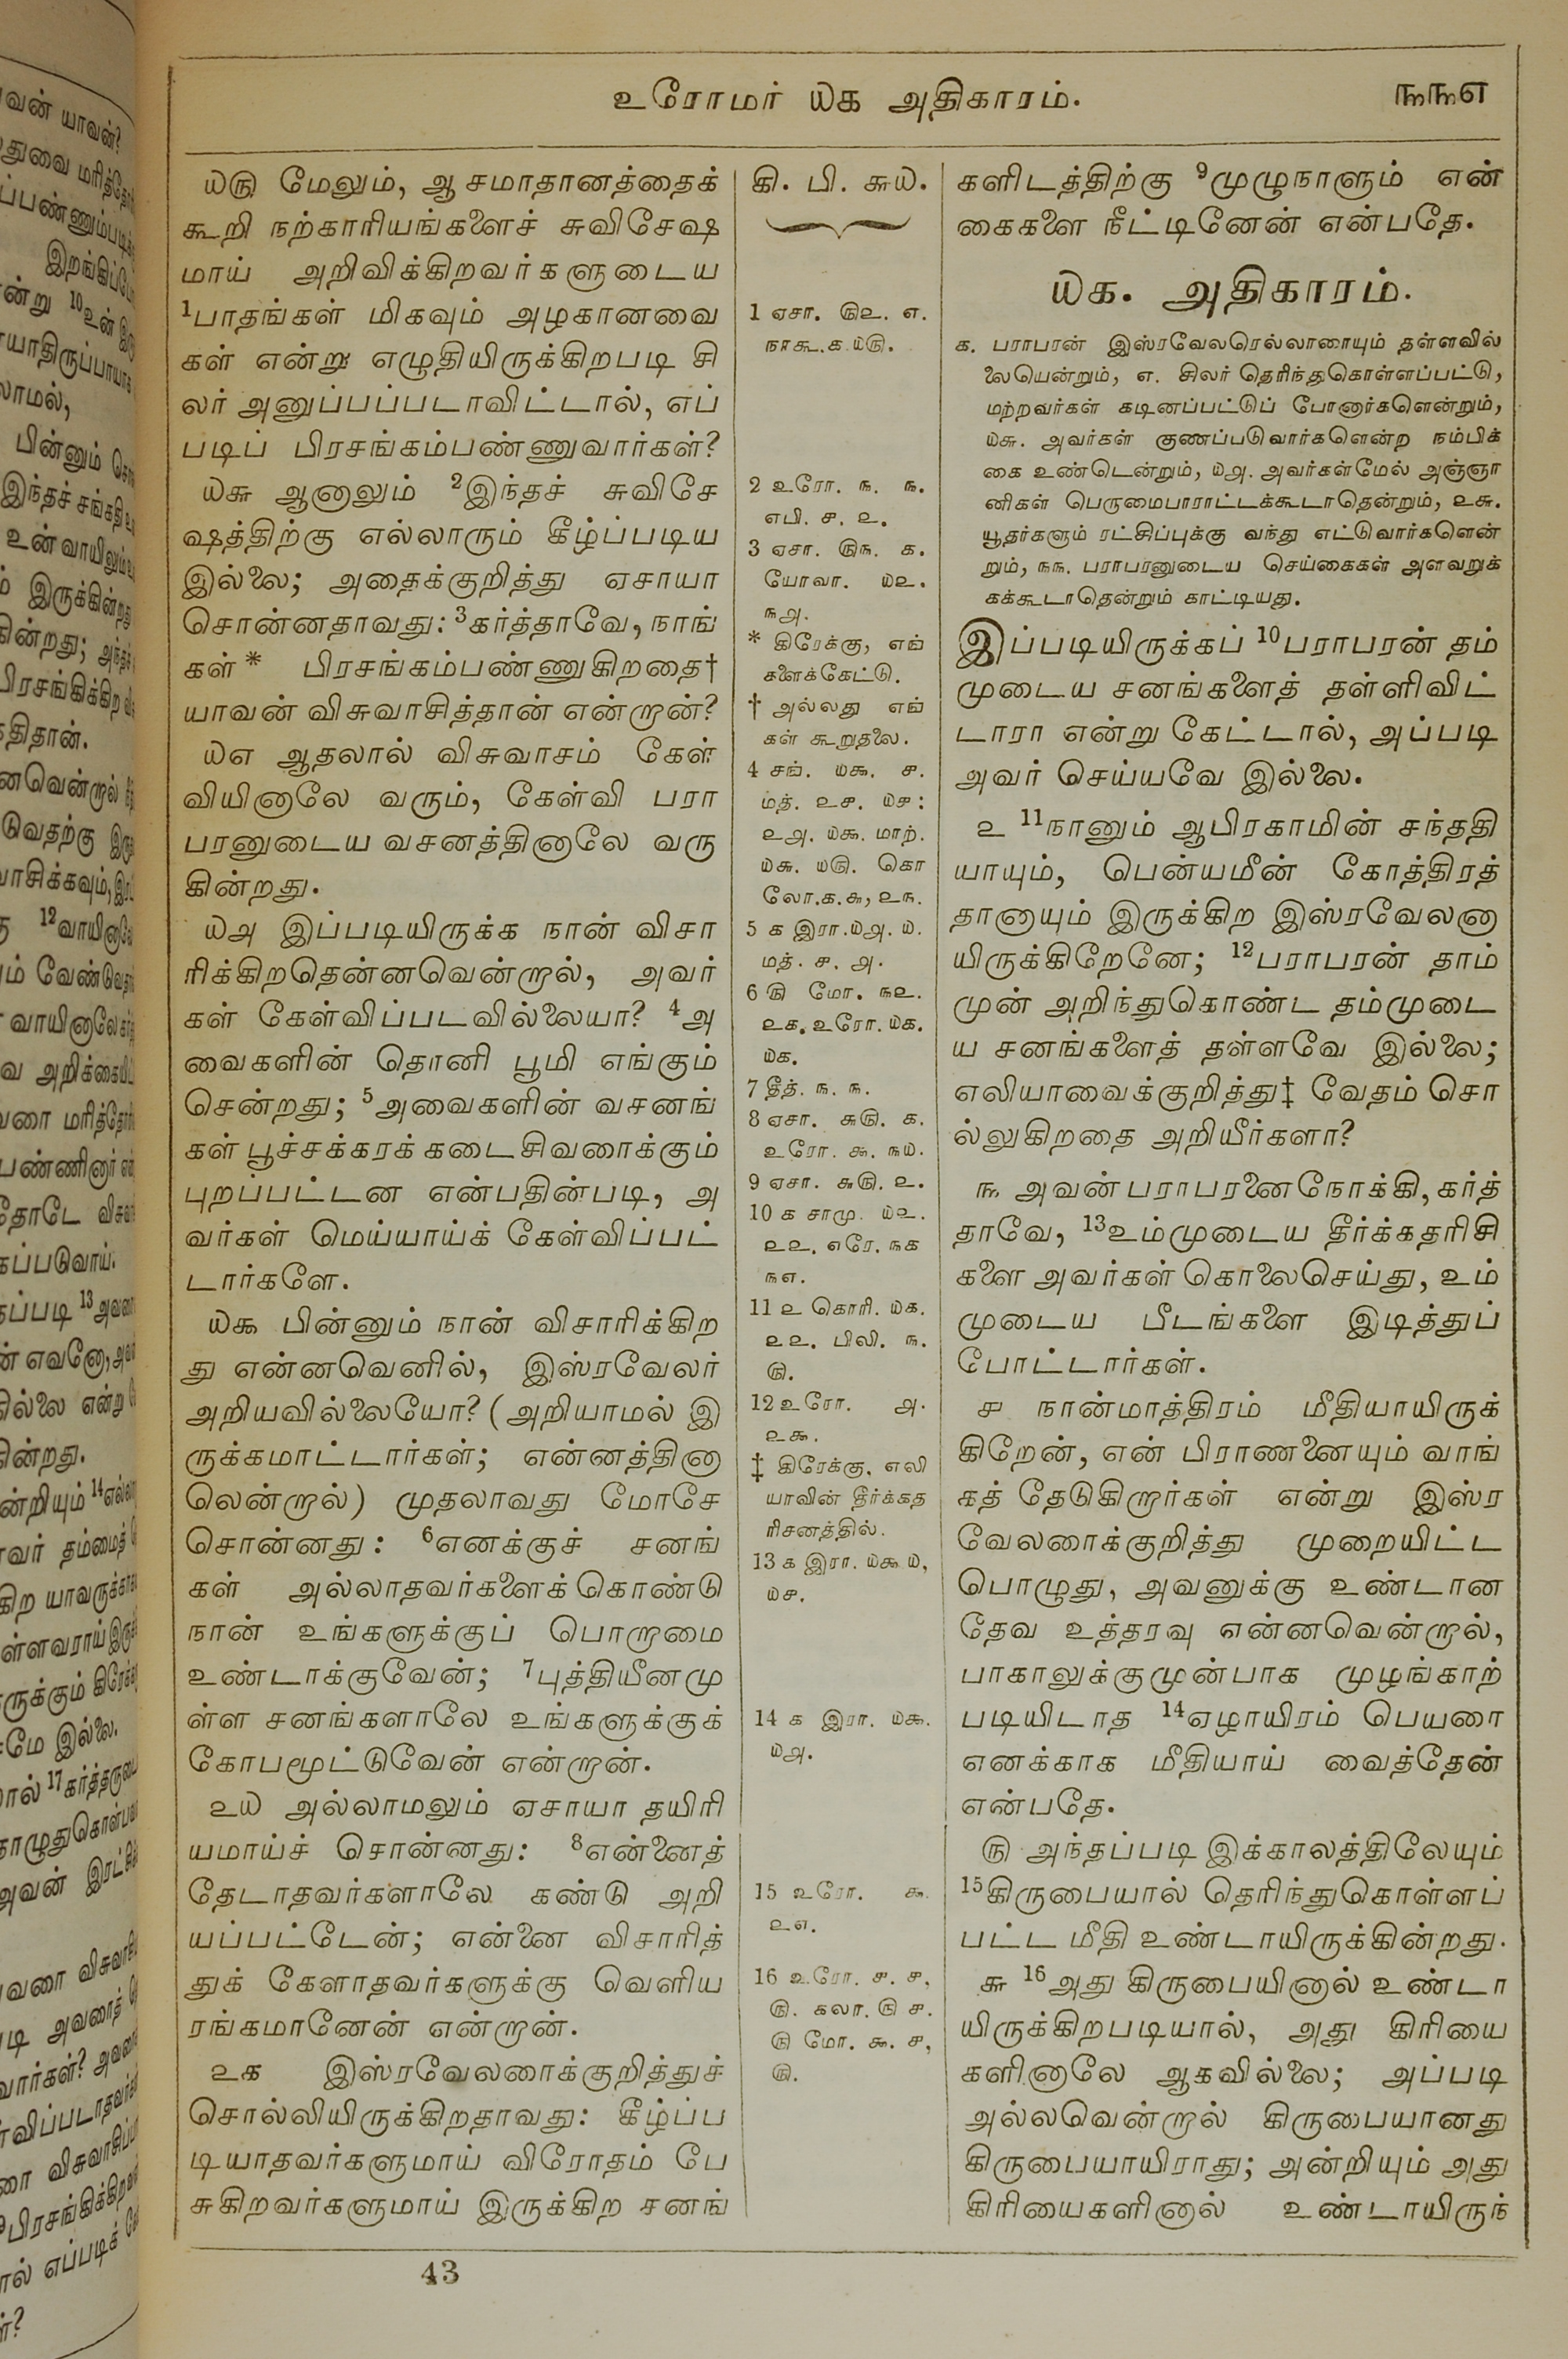 உரோமர் ௰௧ அதிகாரம்.
௩௩௭
௰௫ மேலும், ஆ சமாதானத்தைக்
கூறி நற்காரியங்களைச் சுவிசேஷ
மாய் அறிவிக்கிறவர்களுடைய
1பாதங்கள் மிகவும் அழகானவை
கள் என்று எழுதியிருக்கிறபடி சி
லர் அனுப்பப்படாவிட்டால், எப்
படிப் பிரசங்கம்பண்ணுவார்கள்?
௰௬ ஆனாலும் 2இந்தச் சுவிசே
ஷத்திற்கு எல்லாரும் கீழ்ப்படிய
இல்லை; அதைக்குறித்து ஏசாயா
சொன்னதாவது: 3கர்த்தாவே, நாங்
கள்* பிரசங்கம்பண்ணுகிறதை†
யாவன் விசுவாசித்தான் என்றான்?
௰௭ ஆதலால் விசுவாசம் கேள்
வியினாலே வரும், கேள்வி பரா
பரனுடைய வசனத்தினாலே வரு
கின்றது.
௰௮ இப்படியிருக்க நான் விசா
ரிக்கிறதென்னவென்றால், அவர்
கள் கேள்விப்படவில்லையா? 4அ
வைகளின் தொனி பூமி எங்கும்
சென்றது; 5அவைகளின் வசனங்
கள் பூச்சக்கரக் கடைசிவரைக்கும்
புறப்பட்டன என்பதின்படி, அ
வர்கள் மெய்யாய்க் கேள்விப்பட்
டார்களே.
௰௯ பின்னும் நான் விசாரிக்கிற
து என்னவெனில், இஸ்ரவேலர்
அறியவில்லையோ? (அறியாமல் இ
ருக்கமாட்டார்கள்; என்னத்தினா
லென்றால்) முதலாவது மோசே
சொன்னது: 6எனக்குச் சனங்
கள் அல்லாதவர்களைக்கொண்டு
நான் உங்களுக்குப் பொறாமை
உண்டாக்குவேன்; 7புத்தியீனமு
ள்ள சனங்களாலே உங்களுக்குக்
கோபமூட்டுவேன் என்றான்.
௨௰ அல்லாமலும் ஏசாயா தயிரி
யமாய்ச் சொன்னது: 8என்னைத்
தேடாதவர்களாலே கண்டு அறி
யப்பட்டேன்; என்னை விசாரித்
துக் கேளாதவர்களுக்கு வெளிய
ரங்கமானேன் என்றான்.
௨௧ இஸ்ரவேலரைக்குறித்துச்
சொல்லியிருக்கிறதாவது: கீழ்ப்ப
டியாதவர்களுமாய் விரோதம் பே
சுகிறவர்களுமாய் இருக்கிற சனங்
கி. பி. ௬௰.
1 ஏசா. ௫௨. ௭.
நாகூ.க.௰௫.
2 உரோ. ௩. ௩.
எபி. ௪. ௨.
3 ஏசா. ௫௩. ௧.
யோவா. ௰௨.
௩௮.
* கிரேக்கு, எங்
களைக்கேட்டு.
† அல்லது எங்
கள் கூறுதலை.
4 சங். ௰௯. ௪.
மத். ௨௪. ௰௪:
௨௮. ௰௯. மாற்.
௰௬. ௰௫. கொ
லோ.௧.௬, ௨௩.
5 ௧ இரா.௰௮. ௰.
மத். ௪. ௮.
6 ௫ மோ. ௩௨.
௨௧. உரோ. ௰௧.
௰௧.
7 தீத். ௩. ௩.
8 ஏசா. ௬௫. ௧.
உரோ. ௯. ௩௰.
9 ஏசா. ௬௫. ௨.
10 ௧ சாமு. ௰௨.
௨௨. எரே. ௩௧
௩௭.
11 ௨ கொரி. ௰௧.
௨௨. பிலி. ௩.
௫.
12 உரோ. ௮.
௨௯.
‡ கிரேக்கு, எலி
யாவின் தீர்க்கத
ரிசனத்தில்.
13 ௧ இரா. ௰௯ ௰,
௰௪.
14 ௧ இரா. ௰௯.
௰௮.
15 உரோ. ௯
௨௭.
16 உரோ. ௪. ௪,
௫. கலா. ௫ ௪.
௫ மோ. ௯. ௪,
௫.
களிடத்திற்கு 9முழுநாளும் என்
கைகளை நீட்டினேன் என்பதே.
௰௧. அதிகாரம்.
௧. பராபரன் இஸ்ரவேலரெல்லாரையும் தள்ளவில்
லையென்றும், ௭. சிலர் தெரிந்துகொள்ளப்பட்டு,
மற்றவர்கள் கடினப்பட்டுப் போனார்களென்றும்,
௰௬. அவர்கள் குணப்படுவார்களென்ற நம்பிக்
கை உண்டென்றும், ௰௮. அவர்கள்மேல் அஞ்ஞா
னிகள் பெருமைபாராட்டக்கூடாதென்றும், ௨௬.
யூதர்களும் ரட்சிப்புக்கு வந்து எட்டுவார்களென்
றும், ௩௩. பராபரனுடைய செய்கைகள் அளவறுக்
கக்கூடாதென்றும் காட்டியது.
இப்படியிருக்கப் 10பராபரன் தம்
முடைய சனங்களைத் தள்ளிவிட்
டாரா என்று கேட்டால், அப்படி
அவர் செய்யவே இல்லை.
௨ 11நானும் ஆபிரகாமின் சந்ததி
யாயும், பென்யமீன் கோத்திரத்
தானாயும் இருக்கிற இஸ்ரவேலனா
யிருக்கிறேனே; 12பராபரன் தாம்
முன் அறிந்துகொண்ட தம்முடை
ய சனங்களைத் தள்ளவே இல்லை;
எலியாவைக்குறித்து‡ வேதம் சொ
ல்லுகிறதை அறியீர்களா?
௩ அவன் பராபரனைநோக்கி, கர்த்
தாவே, 13உம்முடைய தீர்க்கதரிசி
களை அவர்கள் கொலைசெய்து, உம்
முடைய பீடங்களை இடித்துப்
போட்டார்கள்.
௪ நான்மாத்திரம் மீதியாயிருக்
கிறேன், என் பிராணனையும் வாங்
கத் தேடுகிறார்கள் என்று இஸ்ர
வேலரைக்குறித்து முறையிட்ட
பொழுது, அவனுக்கு உண்டான
தேவ உத்தரவு என்னவென்றால்,
பாகாலுக்குமுன்பாக முழங்காற்
படியிடாத 14ஏழாயிரம் பெயரை
எனக்காக மீதியாய் வைத்தேன்
என்பதே.
௫ அந்தப்படி இக்காலத்திலேயும்
15கிருபையால் தெரிந்துகொள்ளப்
பட்ட மீதி உண்டாயிருக்கின்றது.
௬ 16அது கிருபையினால் உண்டா
யிருக்கிறபடியால், அது கிரியை
களினாலே ஆகவில்லை; அப்படி
அல்லவென்றால் கிருபையானது
கிருபையாயிராது; அன்றியும் அது
கிரியைகளினால் உண்டாயிருந்
43